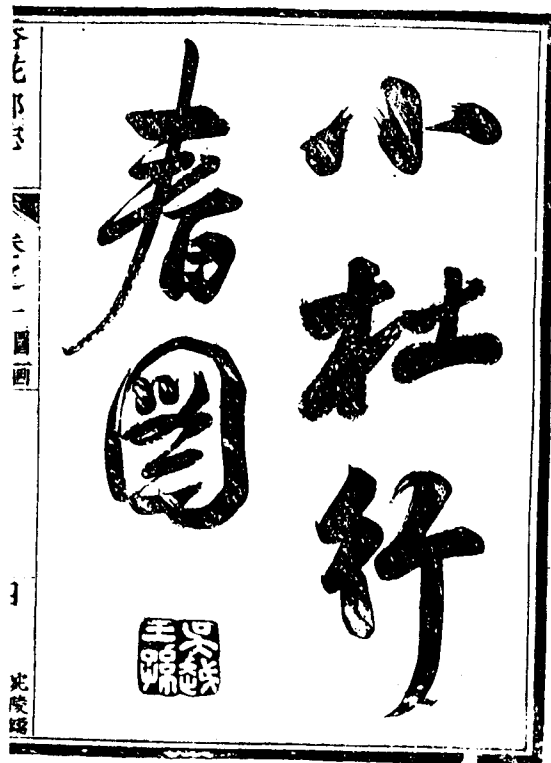 小杜行
春圖
吳越
王孫